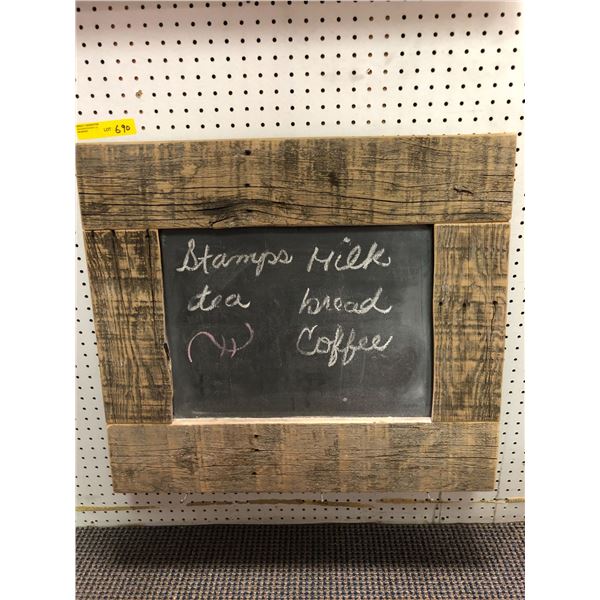 LOT 690
Stamps Milk
tea bread
Coffee